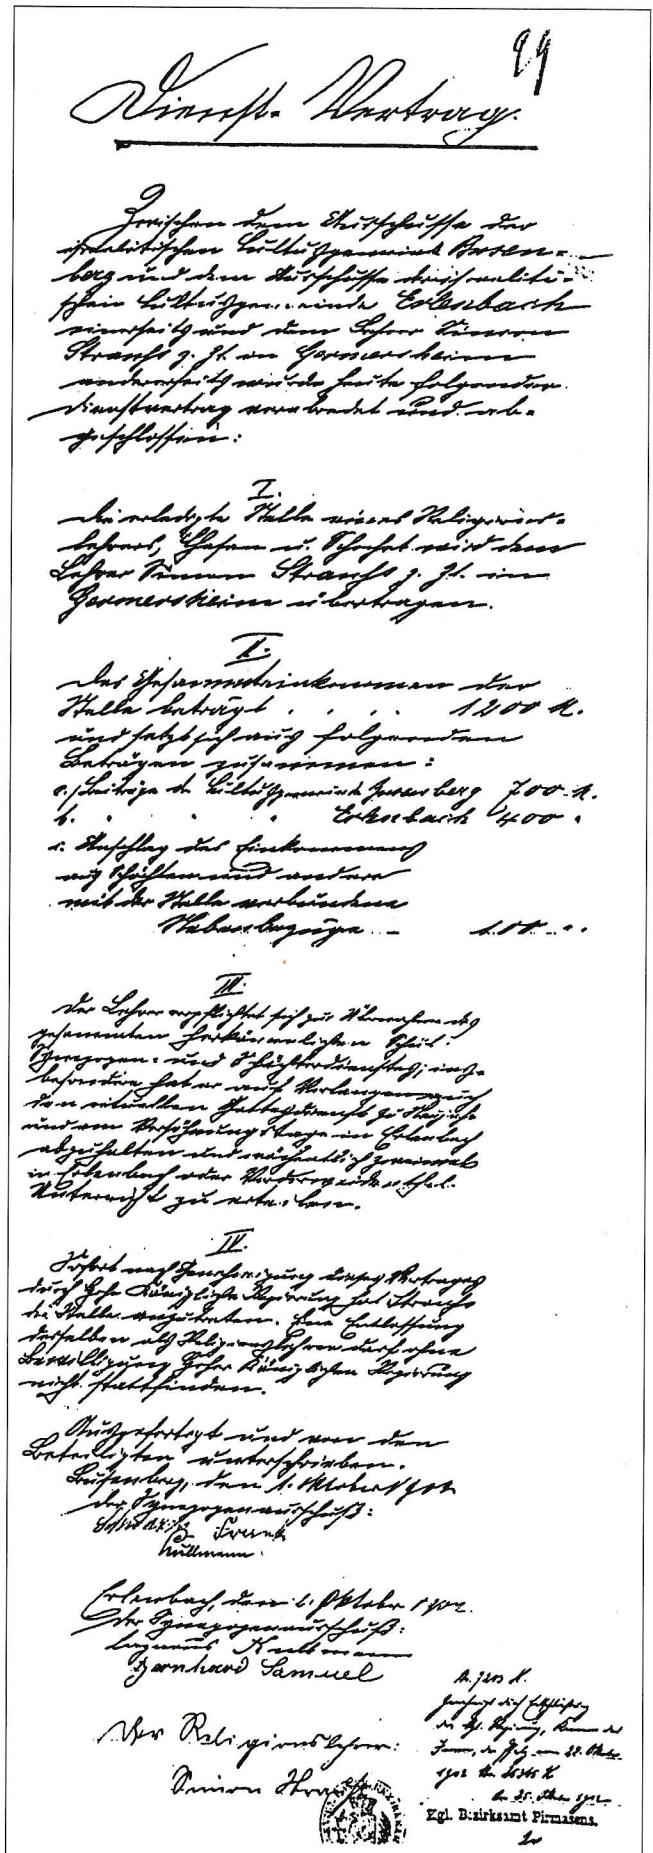 99
Dienst-Vertrag.
Zwischen dem Ausschusse der
israelitischen Cultusgemeinde Busen=
berg und dem Ausschusse der israeliti-
schen Cultusgemeinde Erlenbach
einerseits und dem Lehrer Simon
Strauß z. Zt. in Germersheim
andererseits wurde heute folgender
Dienstvertrag verabredet und ab-
geschlossen:
I.
Die erledigte Stelle eines Religions-
lehrers, Chasan u. Schochet wird dem
Lehrer Simon Strauß z. Zt. in
Germersheim übertragen.
II.
Das Gesammteinkommen der
Stelle beträgt . . . . 1200 M.
und setzt sich aus folgenden
Beträgen zusammen:
a. Beiträge der Cultusgemeinde Busenberg 700 M.
b. " " " Erlenbach 400 "
c. Anschlag des Einkommens
aus Schächten und andere
mit der Stelle verbundene
Nebenbezüge - 100 "
III.
Der Lehrer verpflichtet sich zur Übernahme des
gesammten herkömmlichen Schul-
Synagogen- und Schächterdienstes; ins-
besondere hat er auf Verlangen auch
den rituellen Gottesdienst zu Neujahr
und am Versöhnungstage in Erlenbach
abzuhalten und wöchentlich zweimal
in Erlenbach oder Vorderweidenthal
Unterricht zu erteilen.
IV.
Sofort nach Genehmigung dieses Vertrages
durch Hohe Königliche Regierung hat Strauß
die Stelle anzutreten. Eine Entlassung
desselben als Religionslehrer darf ohne
Bewilligung Hoher Königlichen Regierung
nicht stattfinden.
Ausgefertigt und von den
Beteiligten unterschrieben.
Busenberg, den 1. Oktober 1902
Der Synagogenausschuß:
Frank
Kullmann.
Erlenbach, den 1. Oktober 1902.
Der Synagogenausschuß:
Kullmann
Bernhard Samuel
Der Religionslehrer:
Simon Strauß
No. 7203 K.
Genehmigt durch Entschließung
der Kgl. Regierung, Kammer des
Innern, der Pfalz vom 22. Oktober
1902
1902
Kgl. Bezirksamt Pirmasens.